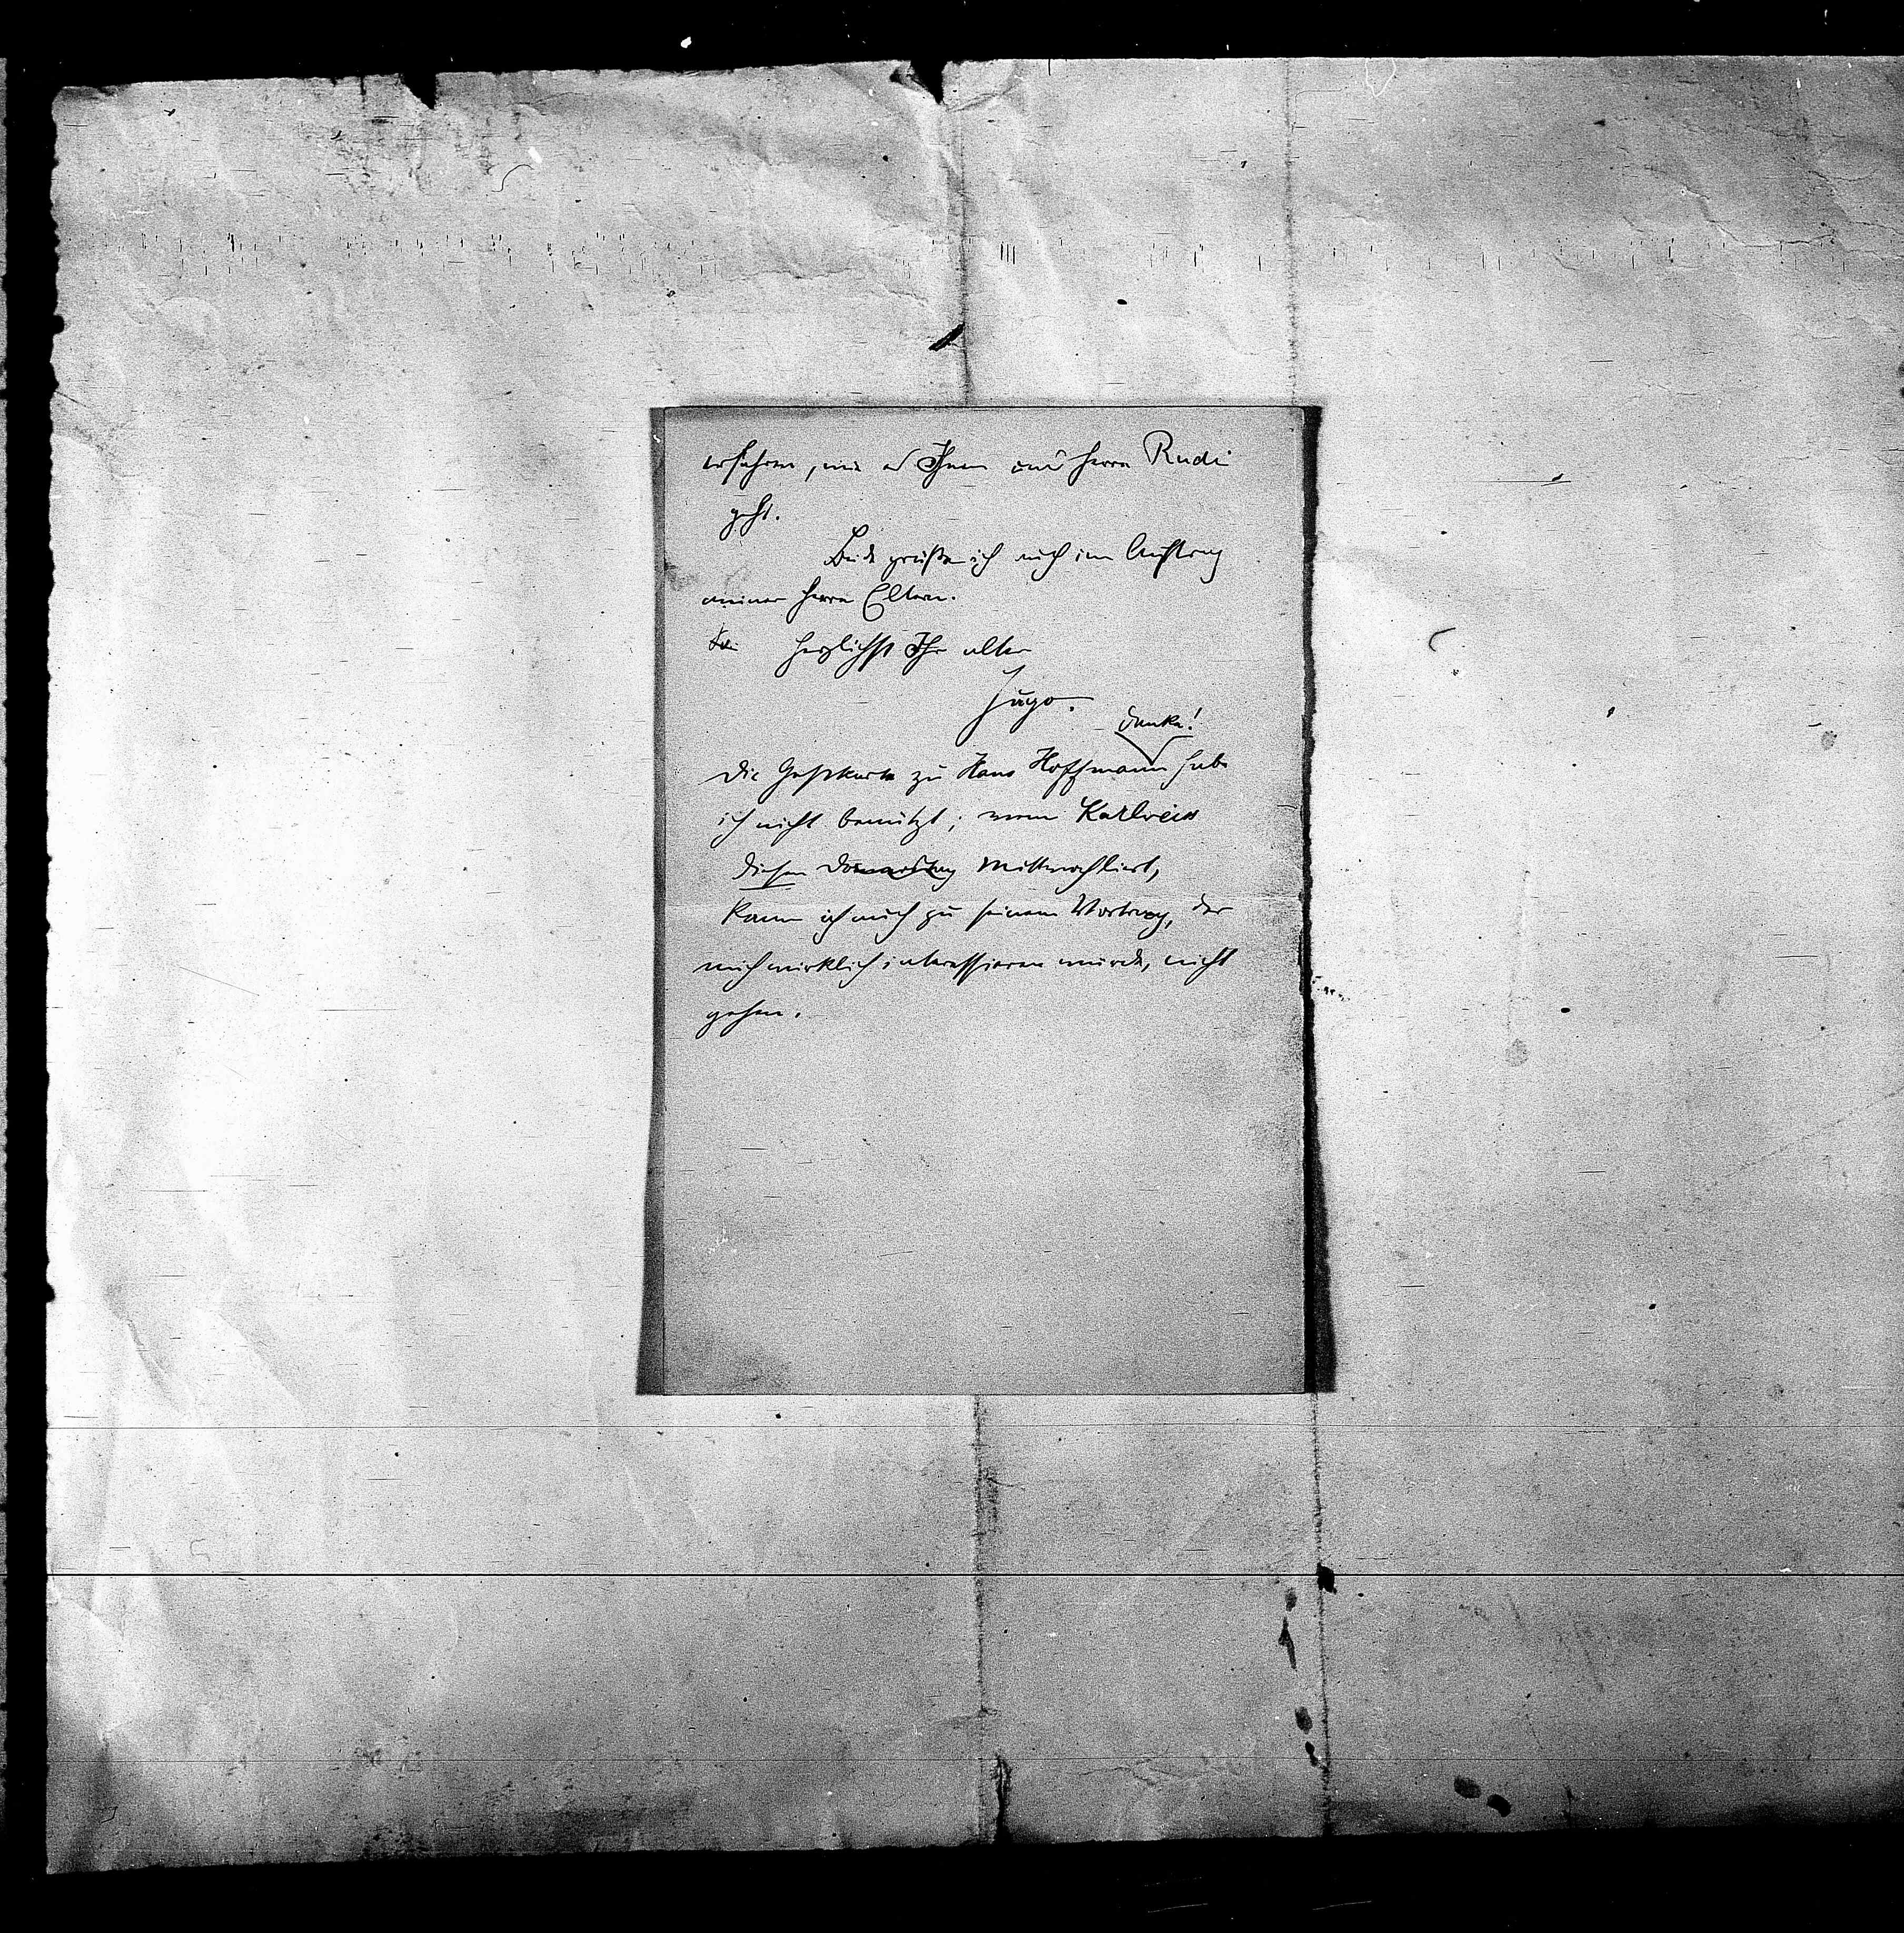 erfahren, wie es Ihnen und Herrn Rudi
geht.
Beide grüße ich auch im Auftrag
meiner Herrn Eltern.
herzlichst Ihr alter
Hugo.
danke!
Die Gastkarte zu Hans Hoffmann habe
ich nicht benützt; wenn Karlweis
diesen Donnerstag Mittwoch liest,
kann ich auch zu seinem Vortrag, der
mich wirklich interessieren würde, nicht
gehen.